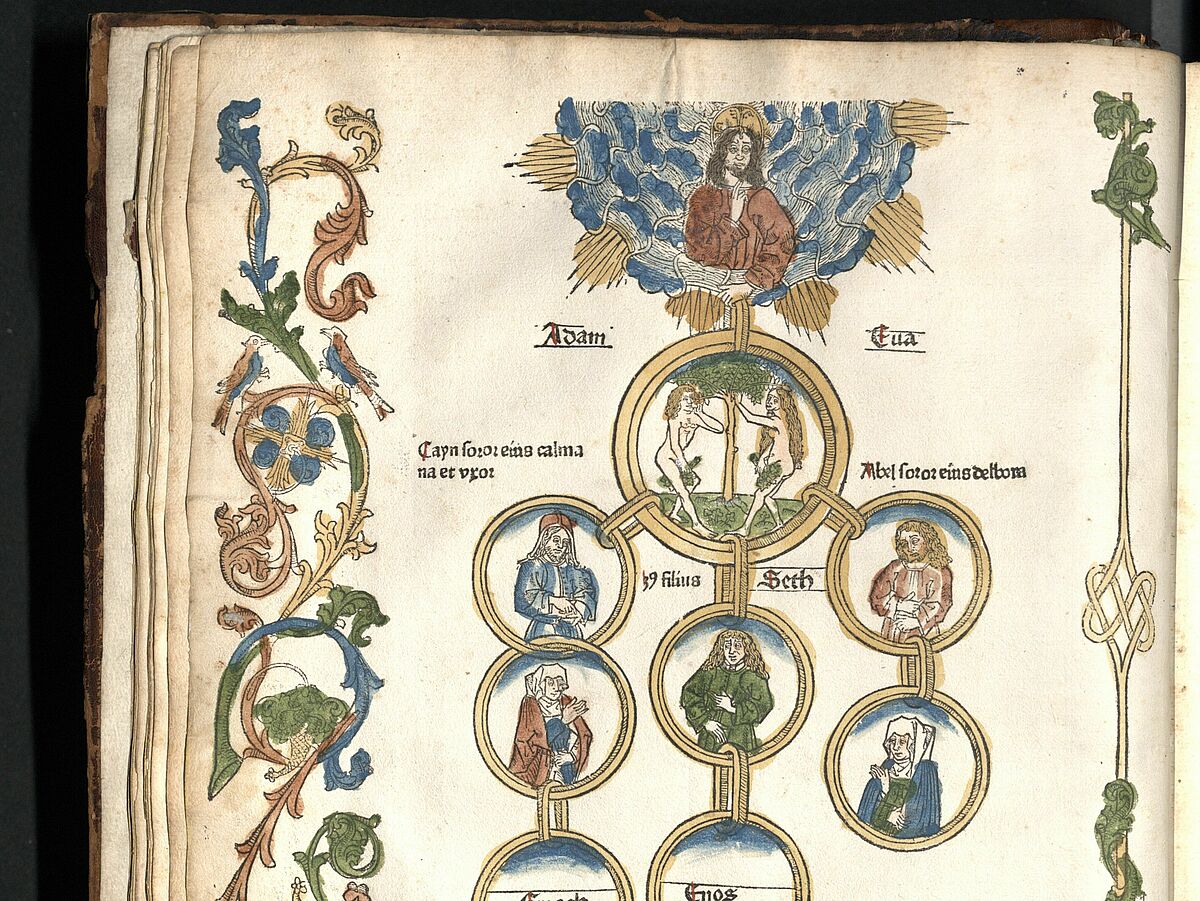 Adam
Eua
Cayn soror eius calma
na et vxor
Abel soror eius delbora
39 filius
Seth
Enoch
Enos